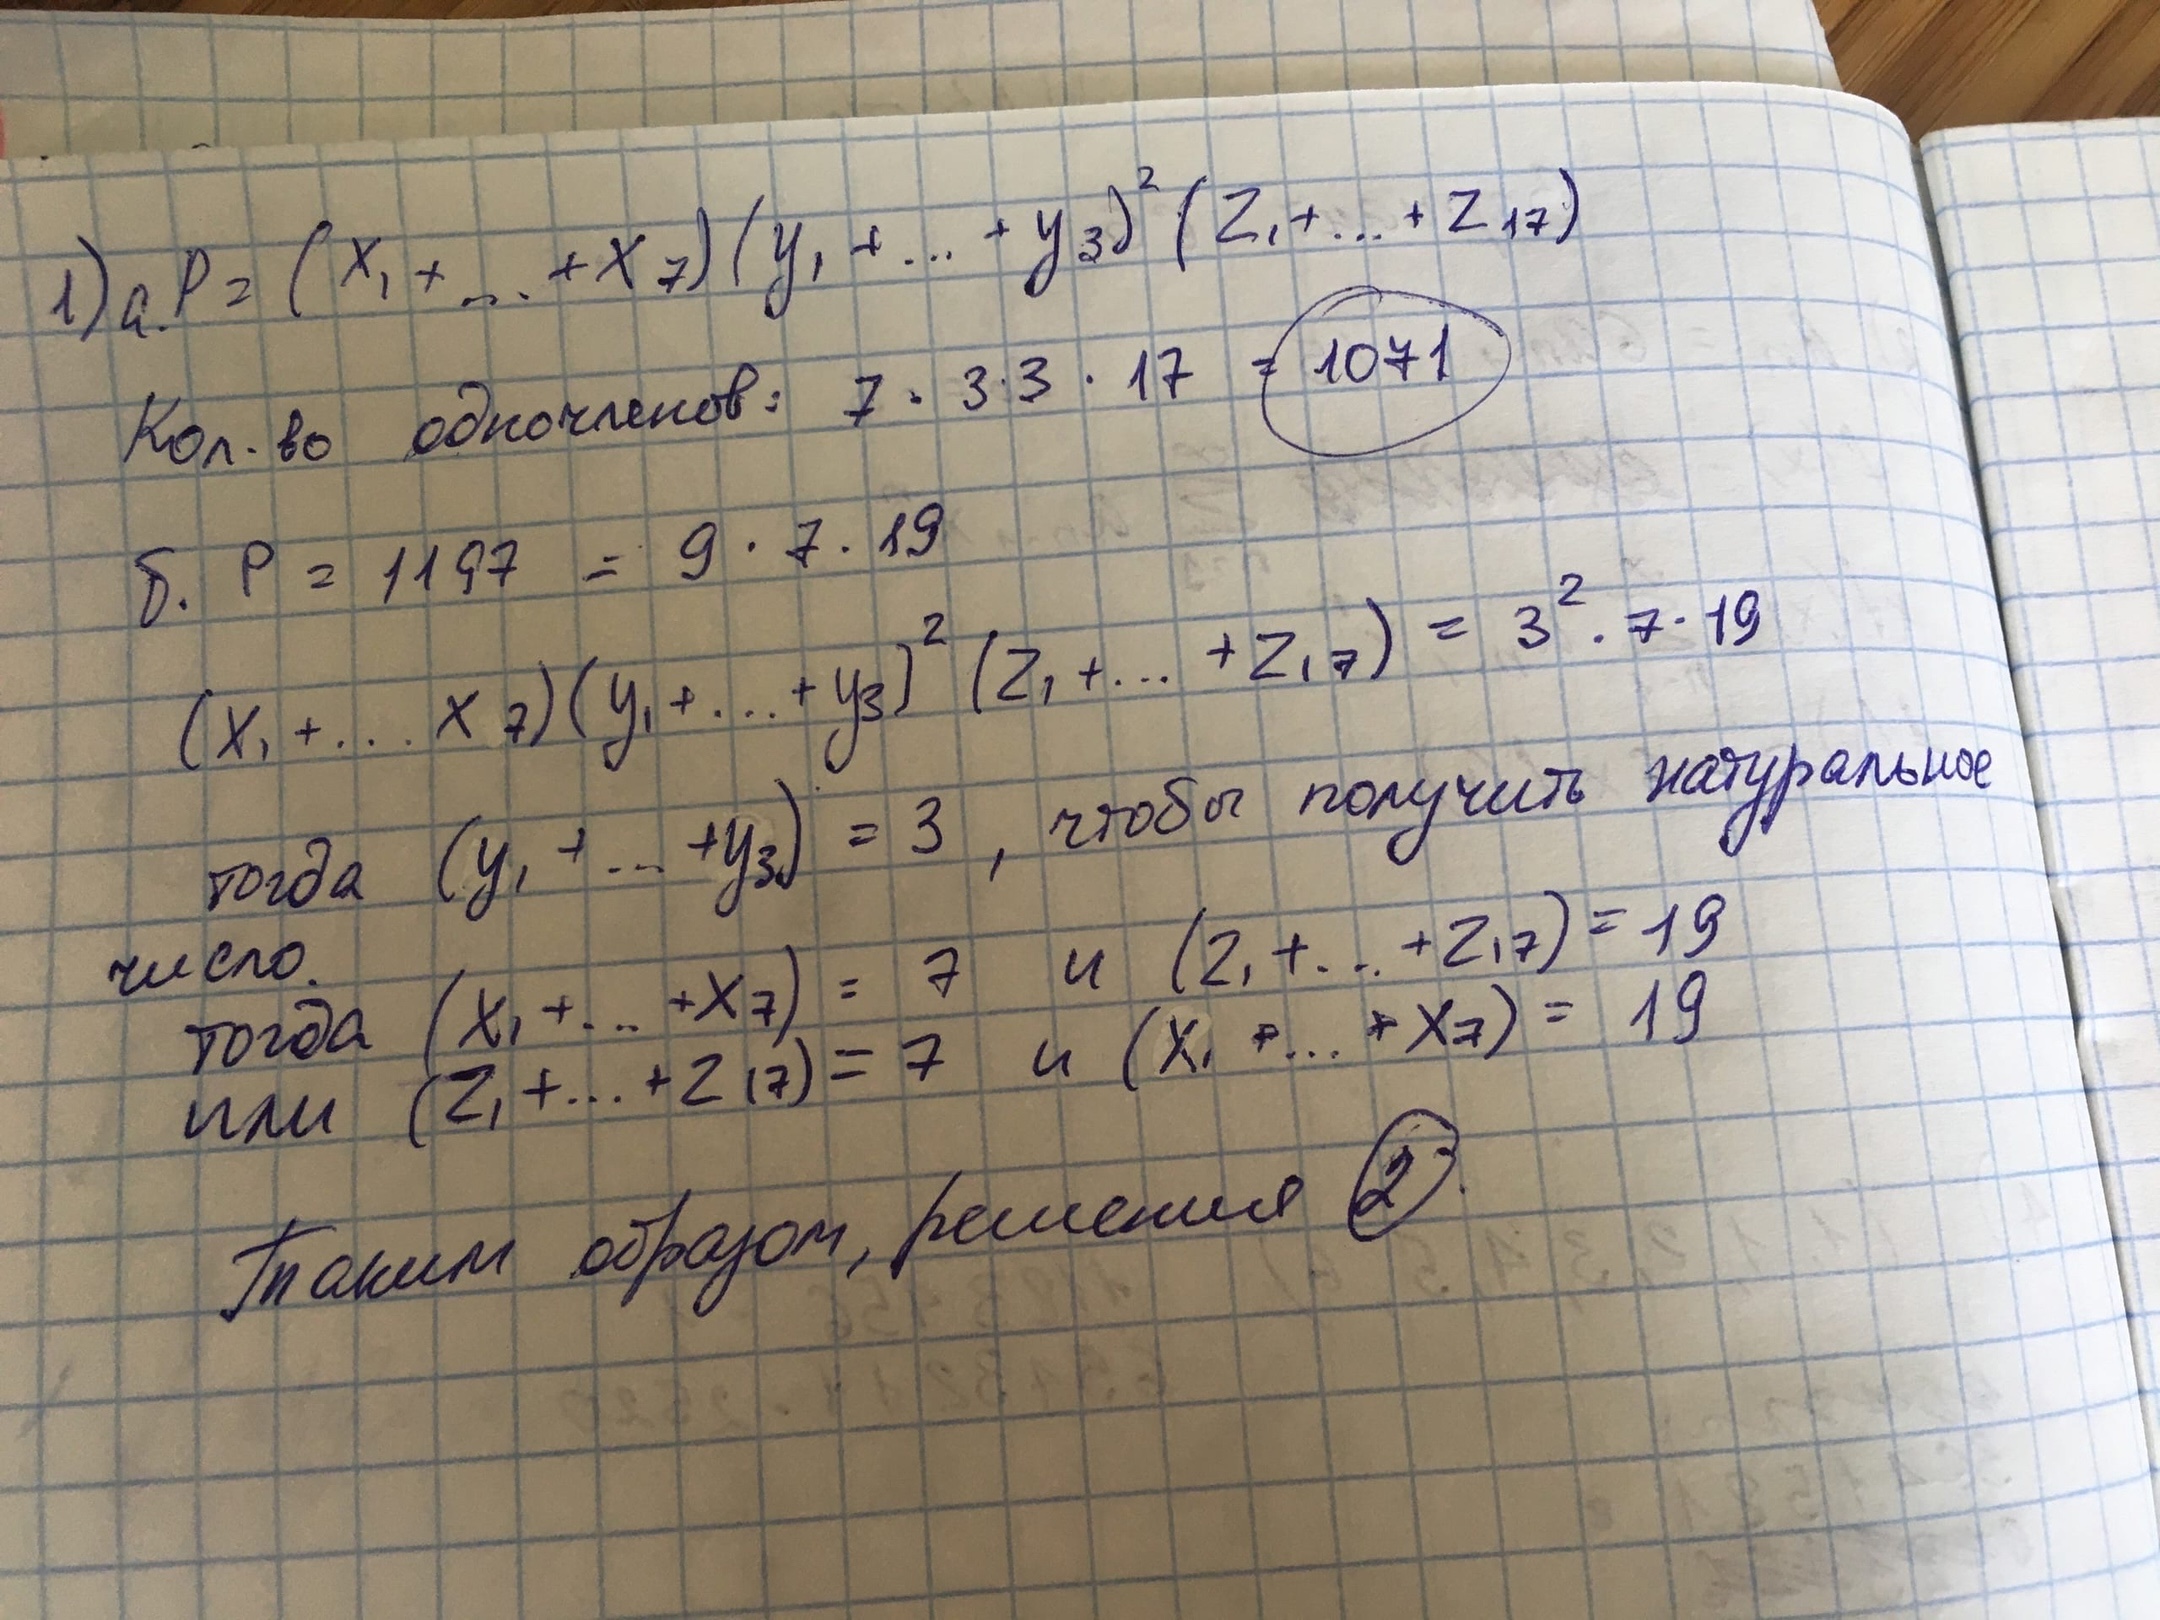 1) а. P = (x₁ + ... + x₇)(y₁ + ... + y₃)² (z₁ + ... + z₁₇)
Кол-во одночленов: 7 · 3·3 · 17 = 1071
б. P = 1197 = 9 · 7 · 19
(x₁ + ... x₇)(y₁ + ... + y₃)² (z₁ + ... + z₁₇) = 3² · 7 · 19
тогда (y₁ + ... + y₃) = 3, чтобы получить натуральное
число.
тогда (x₁ + ... + x₇) = 7 и (z₁ + ... + z₁₇) = 19
или (z₁ + ... + z₁₇) = 7 и (x₁ + ... + x₇) = 19
Таким образом, решения 2.